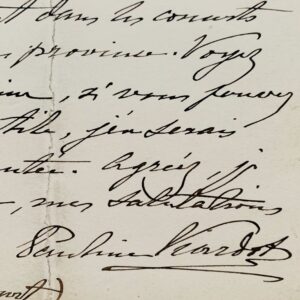 dans les concerts
province. Voyez
, si vous pouvez
j'en serais
Agréez, j
, mes salutations
Pauline Viardot